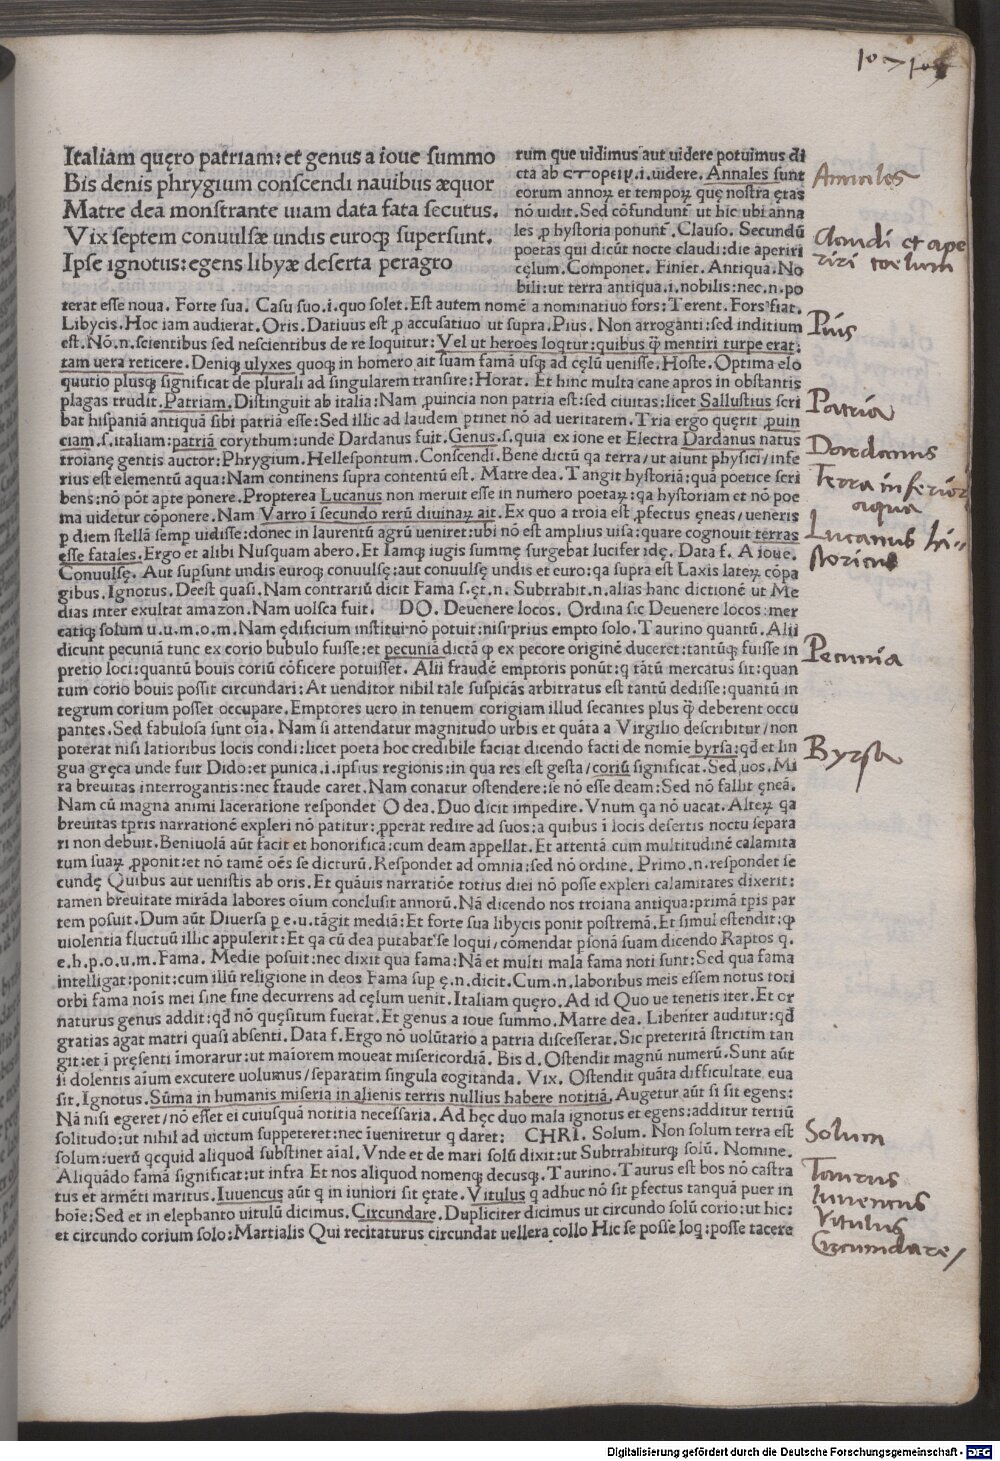 107 109
Italiam quęro patriam: et genus a ioue summo
Bis denis phrygium conscendi nauibus æquor
Matre dea monstrante uiam data fata secutus.
Vix septem conuulsæ undis euroqꝫ supersunt.
Ipse ignotus: egens libyæ deserta peragro
rum que uidimus aut uidere potuimus di
cta ab ἱστορειν .i. uidere. Annales sunt
eorum annoꝝ et tempoꝝ quę nostra ętas
nō uidit. Sed cōfundunt ut hic ubi anna
les ꝓ hystoria ponunt̄. Clauso. Secundū
poetas qui dicūt nocte claudi: die aperiri
cęlum. Componet. Finiet. Antiqua. No
bili: ut terra antiqua .i. nobilis: nec .n. po
terat esse noua. Forte sua. Casu suo .i. quo solet. Est autem nomē a nominatiuo fors: Terent. Fors fiat.
Libycis. Hoc iam audierat. Oris. Datiuus est ꝓ accusatiuo ut supra. Pius. Non arroganti: sed inditium
est. Nō .n. scientibus sed nescientibus de re loquitur: Vel ut heroes loqtur: quibus q̄ mentiri turpe erat:
tam uera reticere. Deniqꝫ ulyxes quoqꝫ in homero ait suam famā usqꝫ ad cęlū uenisse. Hoste. Optima elo
quutio plusqꝫ significat de plurali ad singularem transire: Horat. Et hinc multa cane apros in obstantis
plagas trudit. Patriam. Distinguit ab italia: Nam ꝓuincia non patria est: sed ciuitas: licet Sallustius scri
bat hispaniā antiquā sibi patriā esse: Sed illic ad laudem ptinet nō ad ueritatem. Tria ergo quęrit ꝓuin
ciam .s. italiam: patriā corythum: unde Dardanus fuit. Genus .s. quia ex ioue et Electra Dardanus natus
troianę gentis auctor: Phrygium. Hellespontum. Conscendi. Bene dictū qa terra/ ut aiunt physici/ infe
rius est elementū aqua: Nam continens supra contentū est. Matre dea. Tangit hystoriā: quā poetice scri
bens: nō pōt apte ponere. Propterea Lucanus non meruit esse in numero poetaꝝ: qa hystoriam et nō poe
ma uidetur cōponere. Nam Varro ī secundo rerū diuinaꝝ ait. Ex quo a troia est ꝓfectus ęneas/ ueneris
p diem stellā semp uidisse: donec in laurentū agrū ueniret: ubi nō est amplius uisa: quare cognouit terras
esse fatales. Ergo et alibi Nusquam abero. Et Iamqꝫ iugis summę surgebat lucifer idę. Data f. A ioue.
Conuulsę. Aut supsunt undis euroqꝫ conuulsę: aut conuulsę undis et euro: qa supra est Laxis lateꝝ cōpa
gibus. Ignotus. Deest quasi. Nam contrariū dicit Fama s. ęt. n. Subtrahit .n. alias hanc dictionē ut Me
dias inter exultat amazon. Nam uolsca fuit. DO. Deuenere locos. Ordina sic Deuenere locos: mer
catiqꝫ solum u.u.m.o.m. Nam ędificium institui nō potuit: nisi prius empto solo. Taurino quantū. Alii
dicunt pecuniā tunc ex corio bubulo fuisse: et pecuniā dictā ꝙ ex pecore originē duceret: tantūqꝫ fuisse in
pretio loci: quantū bouis coriū cōficere potuisset. Alii fraudē emptoris ponūt: ꝗ tātū mercatus sit: quan
tum corio bouis possit circundari: At uenditor nihil tale suspicās arbitratus est tantū dedisse: quantū in
tegrum corium posset occupare. Emptores uero in tenuem corigiam illud secantes plus q̄ deberent occu
pantes. Sed fabulosa sunt oīa. Nam si attendatur magnitudo urbis et quāta a Virgilio describitur/ non
poterat nisi latioribus locis condi: licet poeta hoc credibile faciat dicendo facti de nomīe byrsa: qd et lin
gua gręca unde fuit Dido: et punica .i. ipsius regionis: in qua res est gesta/ coriū significat. Sed uos. Mi
ra breuitas interrogantis: nec fraude caret. Nam conatur ostendere: se nō esse deam: Sed nō fallit ęneā.
Nam cū magna animi laceratione respondet O dea. Duo dicit impedire. Vnum qa nō uacat. Alteꝝ qa
breuitas tpris narrationē expleri nō patitur: ꝓperat redire ad suos: a quibus ī locis desertis noctu separa
ri non debuit. Beniuolā aūt facit et honorificā: cum deam appellat. Et attentā cum multitudinē calamita
tum suaꝝ ꝓponit: et nō tamē oēs se dicturū. Respondet ad omnia: sed nō ordine. Primo .n. respondet se
cundę Quibus aut uenistis ab oris. Et quāuis narratiōe totius diei nō posse expleri calamitates dixerit:
tamen breuitate mirāda labores oīum conclusit annorū. Nā dicendo nos troiana antiqua: primā tpis par
tem posuit. Dum aūt Diuersa p e.u. tāgit mediā: Et forte sua libycis ponit postremā. Et simul estendit: ꝙ
uiolentia fluctuū illic appulerit: Et qa cū dea putabat se loqui/ cōmendat psonā suam dicendo Raptos q.
e.h.p.o.u.m. Fama. Medie posuit: nec dixit qua fama: Nā et multi malā fama noti sunt: Sed qua fama
intelligat: ponit: cum illū religione in deos Fama sup ę.n. dicit. Cum .n. laboribus meis essem notus toti
orbi fama noīs mei sine fine decurrens ad cęlum uenit. Italiam quęro. Ad id Quo ue tenetis iter. Et or
naturus genus addit: qd nō quęsitum fuerat. Et genus a ioue summo. Matre dea. Libenter auditur: qd
gratias agat matri quasi absenti. Data f. Ergo nō uolūtario a patria discesserat. Sic preteritā strictim tan
git: et ī pręsenti īmorarur: ut maiorem moueat misericordiā. Bis d. Ostendit magnū numerū. Sunt aūt
si dolentis aīum excutere uolumus/ separatim singula cogitanda. Vix. Ostendit quāta difficultate eua
sit. Ignotus. Sūma in humanis miseria in alienis terris nullius habere notitiā. Augetur aūt si sit egens:
Nā nisi egeret/ nō esset ei cuiusquā notitia necessaria. Ad hęc duo mala ignotus et egens: additur tertiū
solitudo: ut nihil ad uictum suppeteret: nec īueniretur q daret: CHRI. Solum. Non solum terra est
solum: uerū qcquid aliquod substinet aīal. Vnde et de mari solū dixit: ut Subtrahiturqꝫ solū. Nomine.
Aliquādo famā significat: ut infra Et nos aliquod nomenqꝫ decusqꝫ. Taurino. Taurus est bos nō castra
tus et armēti maritus. Iuuencus aūt q in iuniori sit ętate. Vitulus q adhuc nō sit pfectus tanquā puer in
hoīe: Sed et in elephanto uitulū dicimus. Circundare. Dupliciter dicimus ut circundo solū corio: ut hic:
et circundo corium solo: Martialis Qui recitaturus circundat uellera collo Hic se posse loqꝫ: posse tacere
Annales
Claudi et ape
riri coelum
Pius
Patria
Dardanus
Terra inferior
aqua
Lucanus hi-
storicus
Pecunia
Byrsa
Solum
Taurus
Iuuencus
Vitulus
Circumdare/
Digitalisierung gefördert durch die Deutsche Forschungsgemeinschaft - DFG